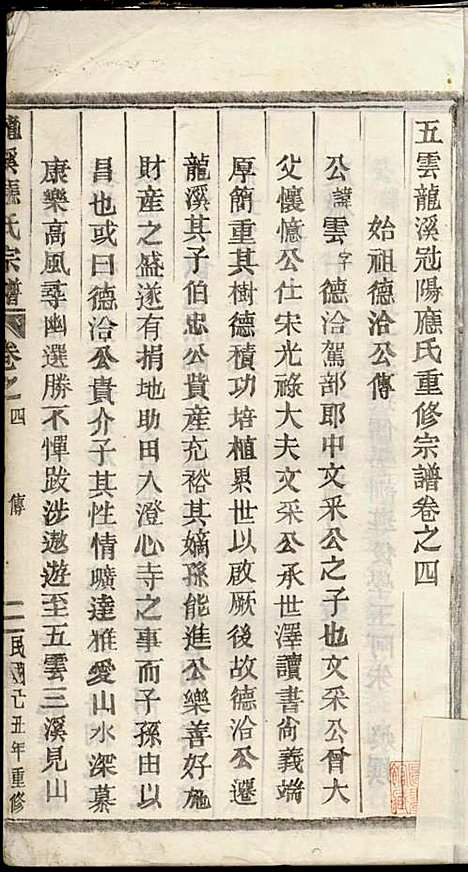 五雲龍溪𣵠陽應氏重修宗譜卷之四
始祖德洽公傳
公諱雲字德洽駕部郎中文釆公之子也文采公曾大
父懷億公仕宋光祿大夫文采公承世澤讀書尙義端
厚簡重其樹德積功培植累世以啟厥後故德洽公遷
龍溪其子伯忠公貲産充裕其嫡孫能進公樂善好施
財産之盛遂有捐地助田入澄心寺之事而子孫由以
昌也或曰德洽公貴介子其性情曠達雅愛山水深慕
康樂高風尋幽選勝不憚跋涉遨遊至五雲三溪見山
龍溪應氏宗譜 卷之四 傳 二 民國己丑年重修